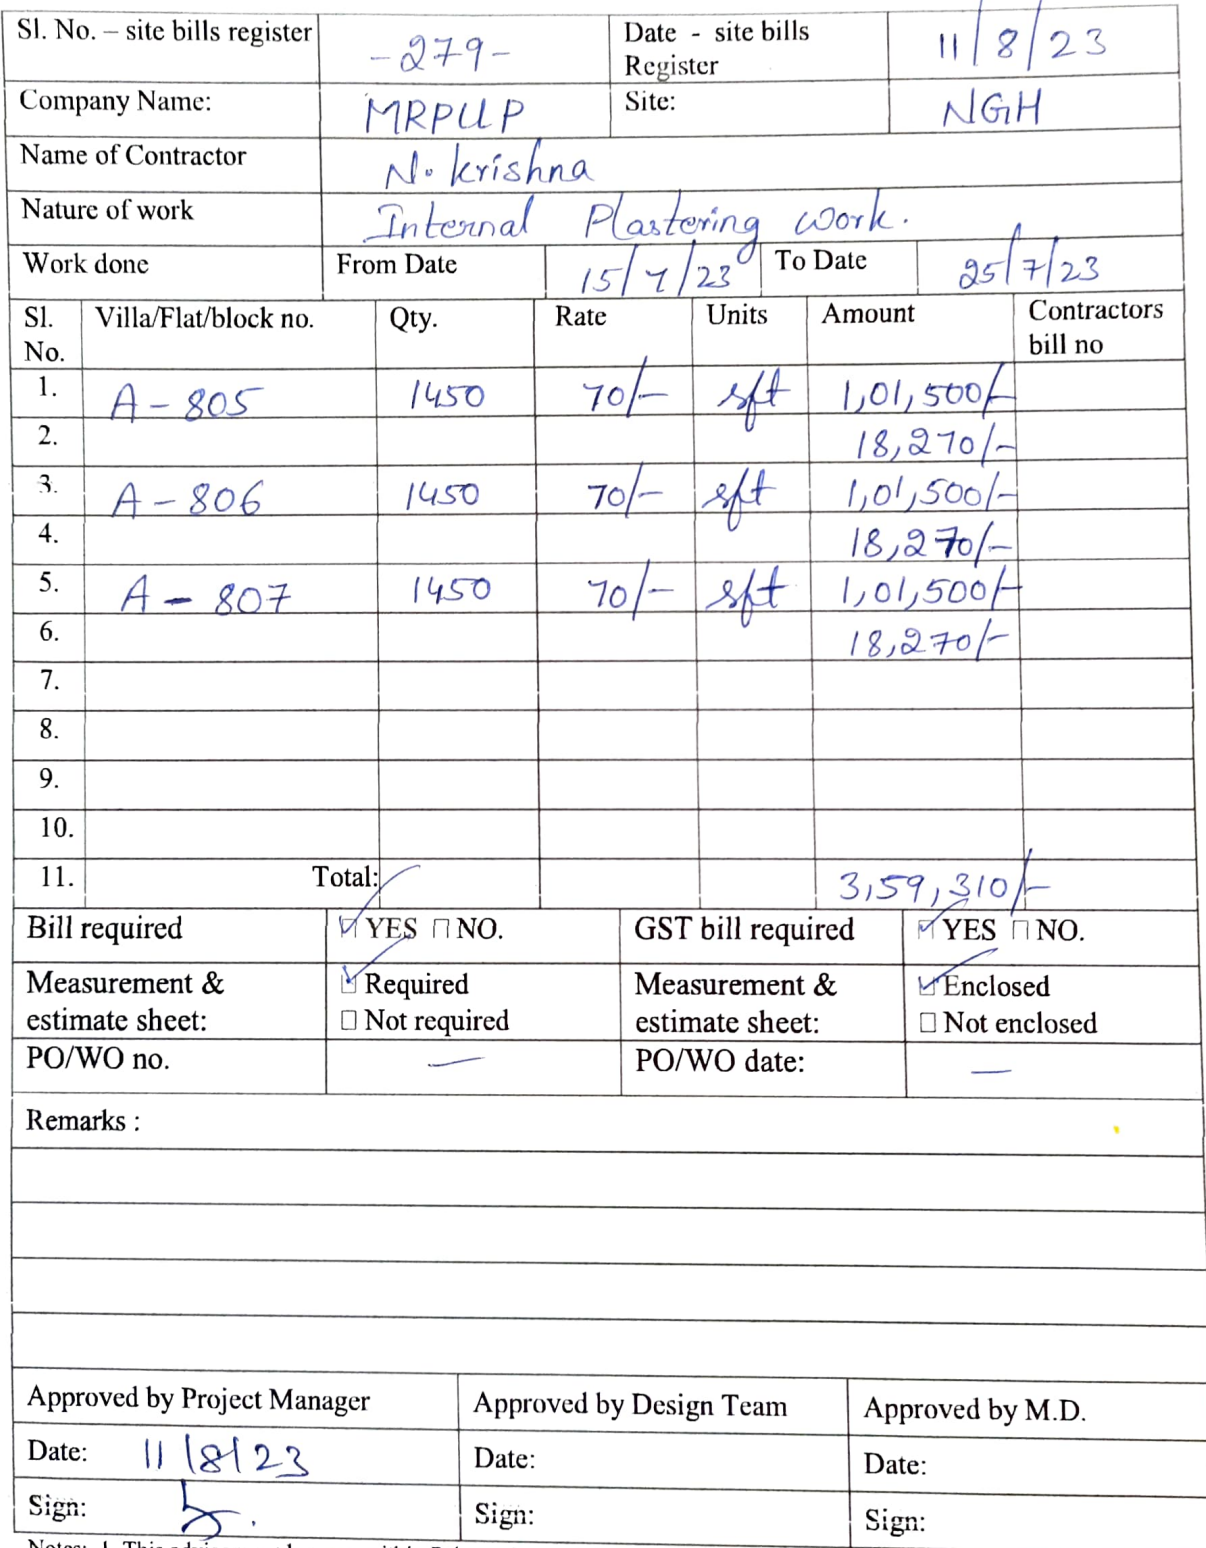 Sl. No. – site bills register -279- Date - site bills Register 11/8/23
Company Name: MRPLLP Site: NGH
Name of Contractor N. krishna
Nature of work Internal Plastering work.
Work done From Date 15/7/23 To Date 25/7/23
Sl. No. Villa/Flat/block no. Qty. Rate Units Amount Contractors bill no
1. A - 805 1450 70/- sft 1,01,500/-
2. 18,270/-
3. A - 806 1450 70/- sft 1,01,500/-
4. 18,270/-
5. A - 807 1450 70/- sft 1,01,500/-
6. 18,270/-
7.
8.
9.
10.
11. Total: 3,59,310/-
Bill required ☑ YES □ NO. GST bill required ☑ YES □ NO.
Measurement & estimate sheet: ☑ Required Measurement & estimate sheet: ☑ Enclosed
□ Not required □ Not enclosed
PO/WO no. — PO/WO date: —
Remarks :
Approved by Project Manager Approved by Design Team Approved by M.D.
Date: 11/8/23 Date: Date:
Sign: Sign: Sign: